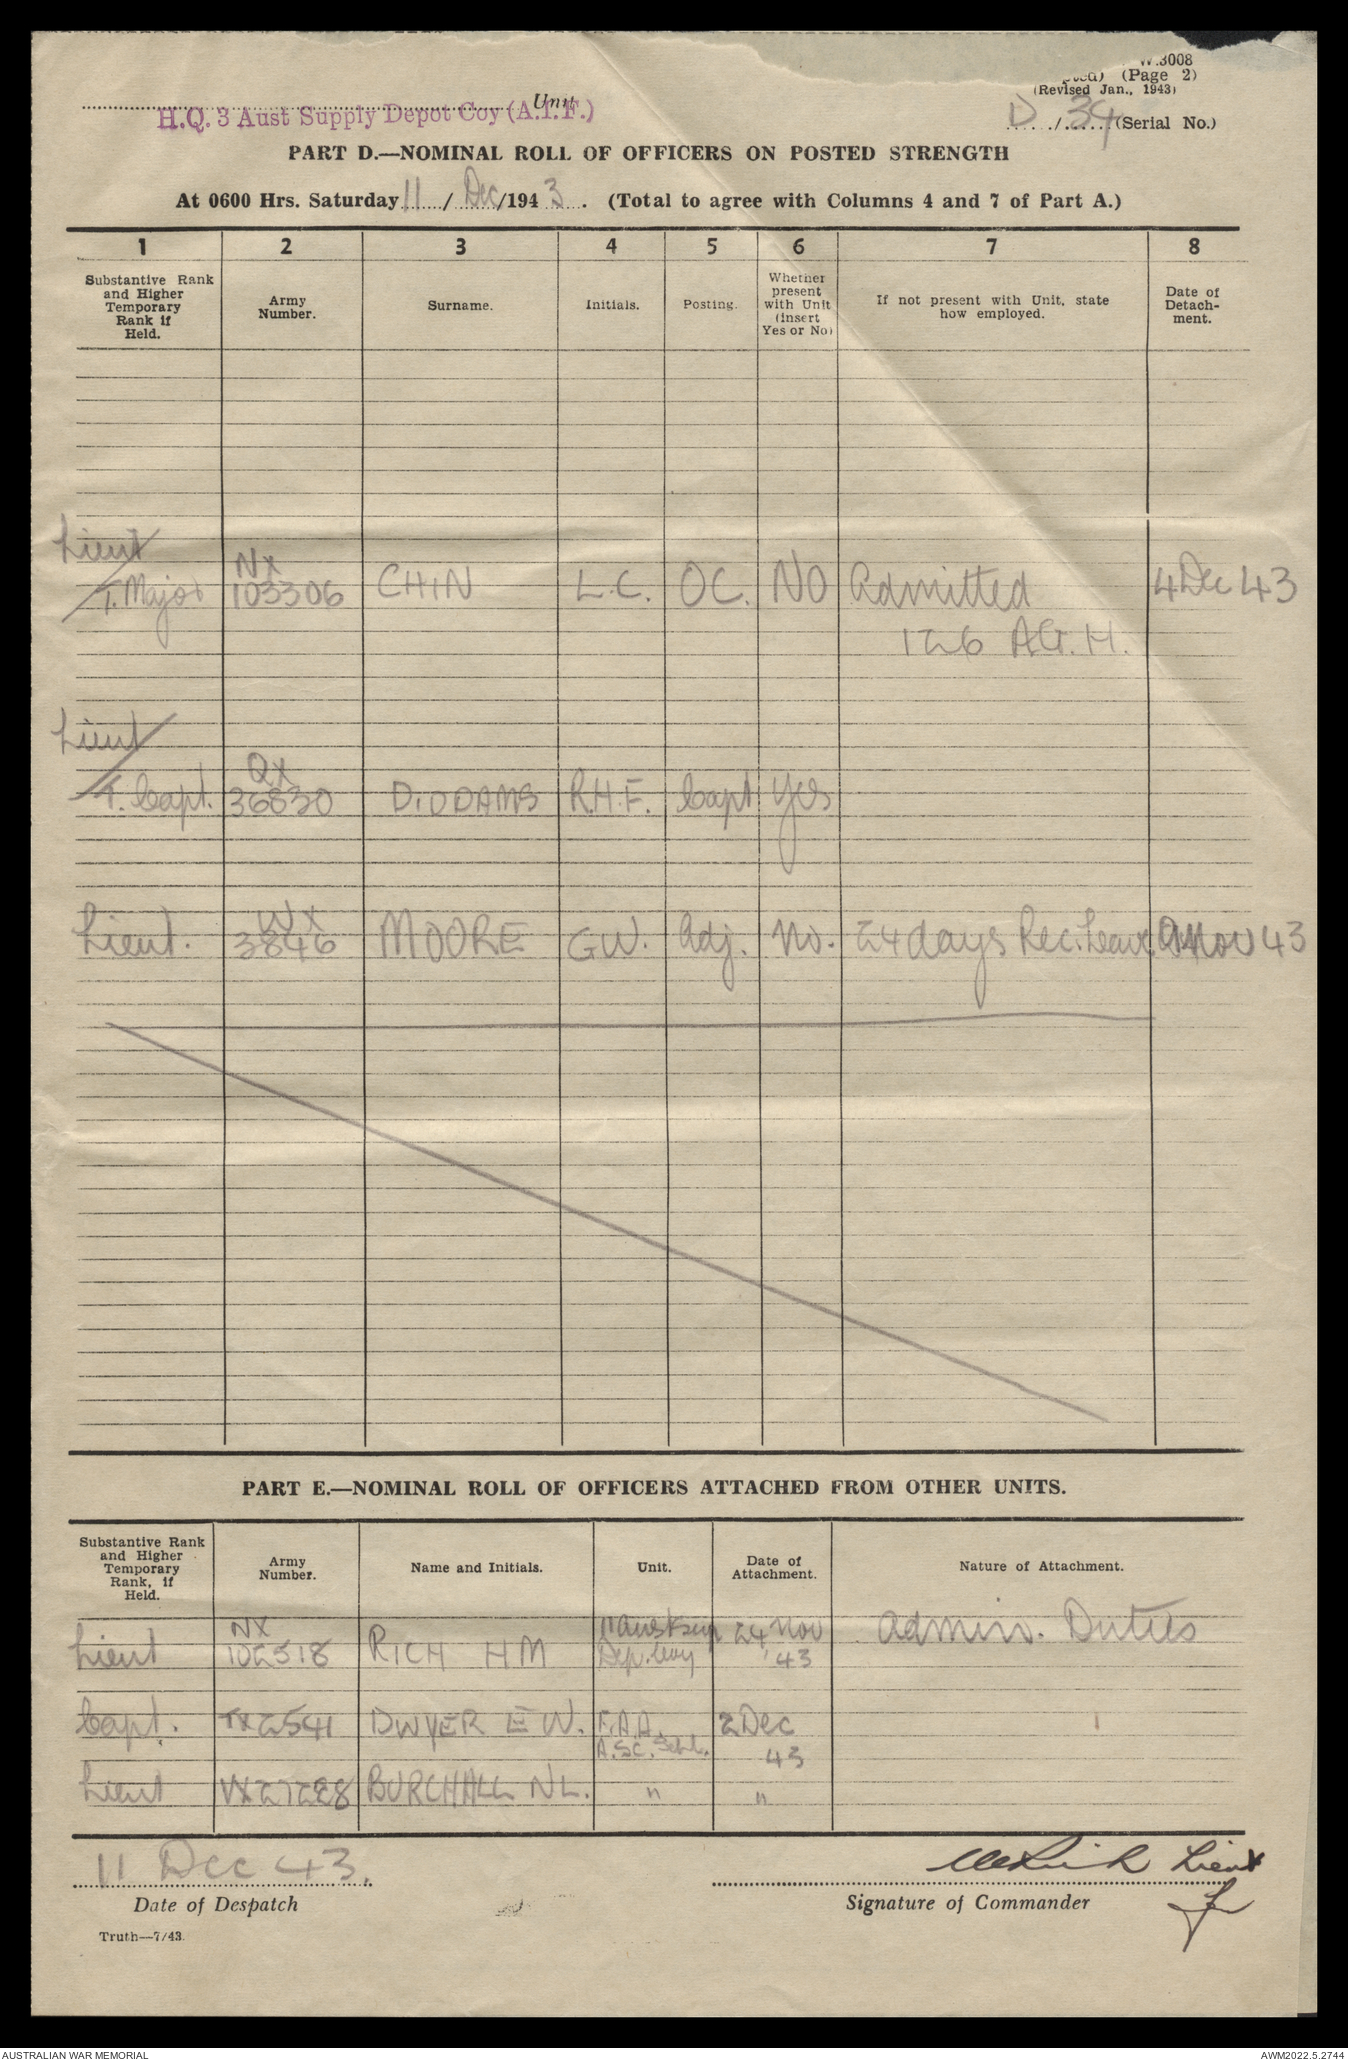 W.3008
(Page 2)
(Revised Jan., 1943)
Unit
H.Q. 3 Aust Supply Depot Coy (A.I.F.)
D / 34 (Serial No.)
PART D.—NOMINAL ROLL OF OFFICERS ON POSTED STRENGTH
At 0600 Hrs. Saturday 11 / Dec /194 3 . (Total to agree with Columns 4 and 7 of Part A.)
1 2 3 4 5 6 7 8
Substantive Rank and Higher Temporary Rank if Held. Army Number. Surname. Initials. Posting. Whether present with Unit (insert Yes or No) If not present with Unit, state how employed. Date of Detach-ment.
Lieut
T. Major NX 103306 CHIN L.C. OC. NO Admitted 4 Dec 43
126 A.G.H.
Lieut
T. Capt. QX 36830 DIDDAMS R.H.F. Capt Yes
Lieut. WX 3846 MOORE G.W. Adj. No. 24 days Rec. Leave Nov 43
PART E.—NOMINAL ROLL OF OFFICERS ATTACHED FROM OTHER UNITS.
Substantive Rank and Higher Temporary Rank, if Held. Army Number. Name and Initials. Unit. Date of Attachment. Nature of Attachment.
Lieut NX 102518 RICH HM 11 Aust Sup Dep. Coy 24 Nov '43 Admin. Duties
Capt. TX2541 DWYER E W. F.A.A. A.SC. 2 Dec 43
Lieut VX27288 BURCHALL NL. " "
11 Dec 43.
Lieut
Date of Despatch
Signature of Commander
for
Truth—7/43.
AUSTRALIAN WAR MEMORIAL
AWM2022.5.2744